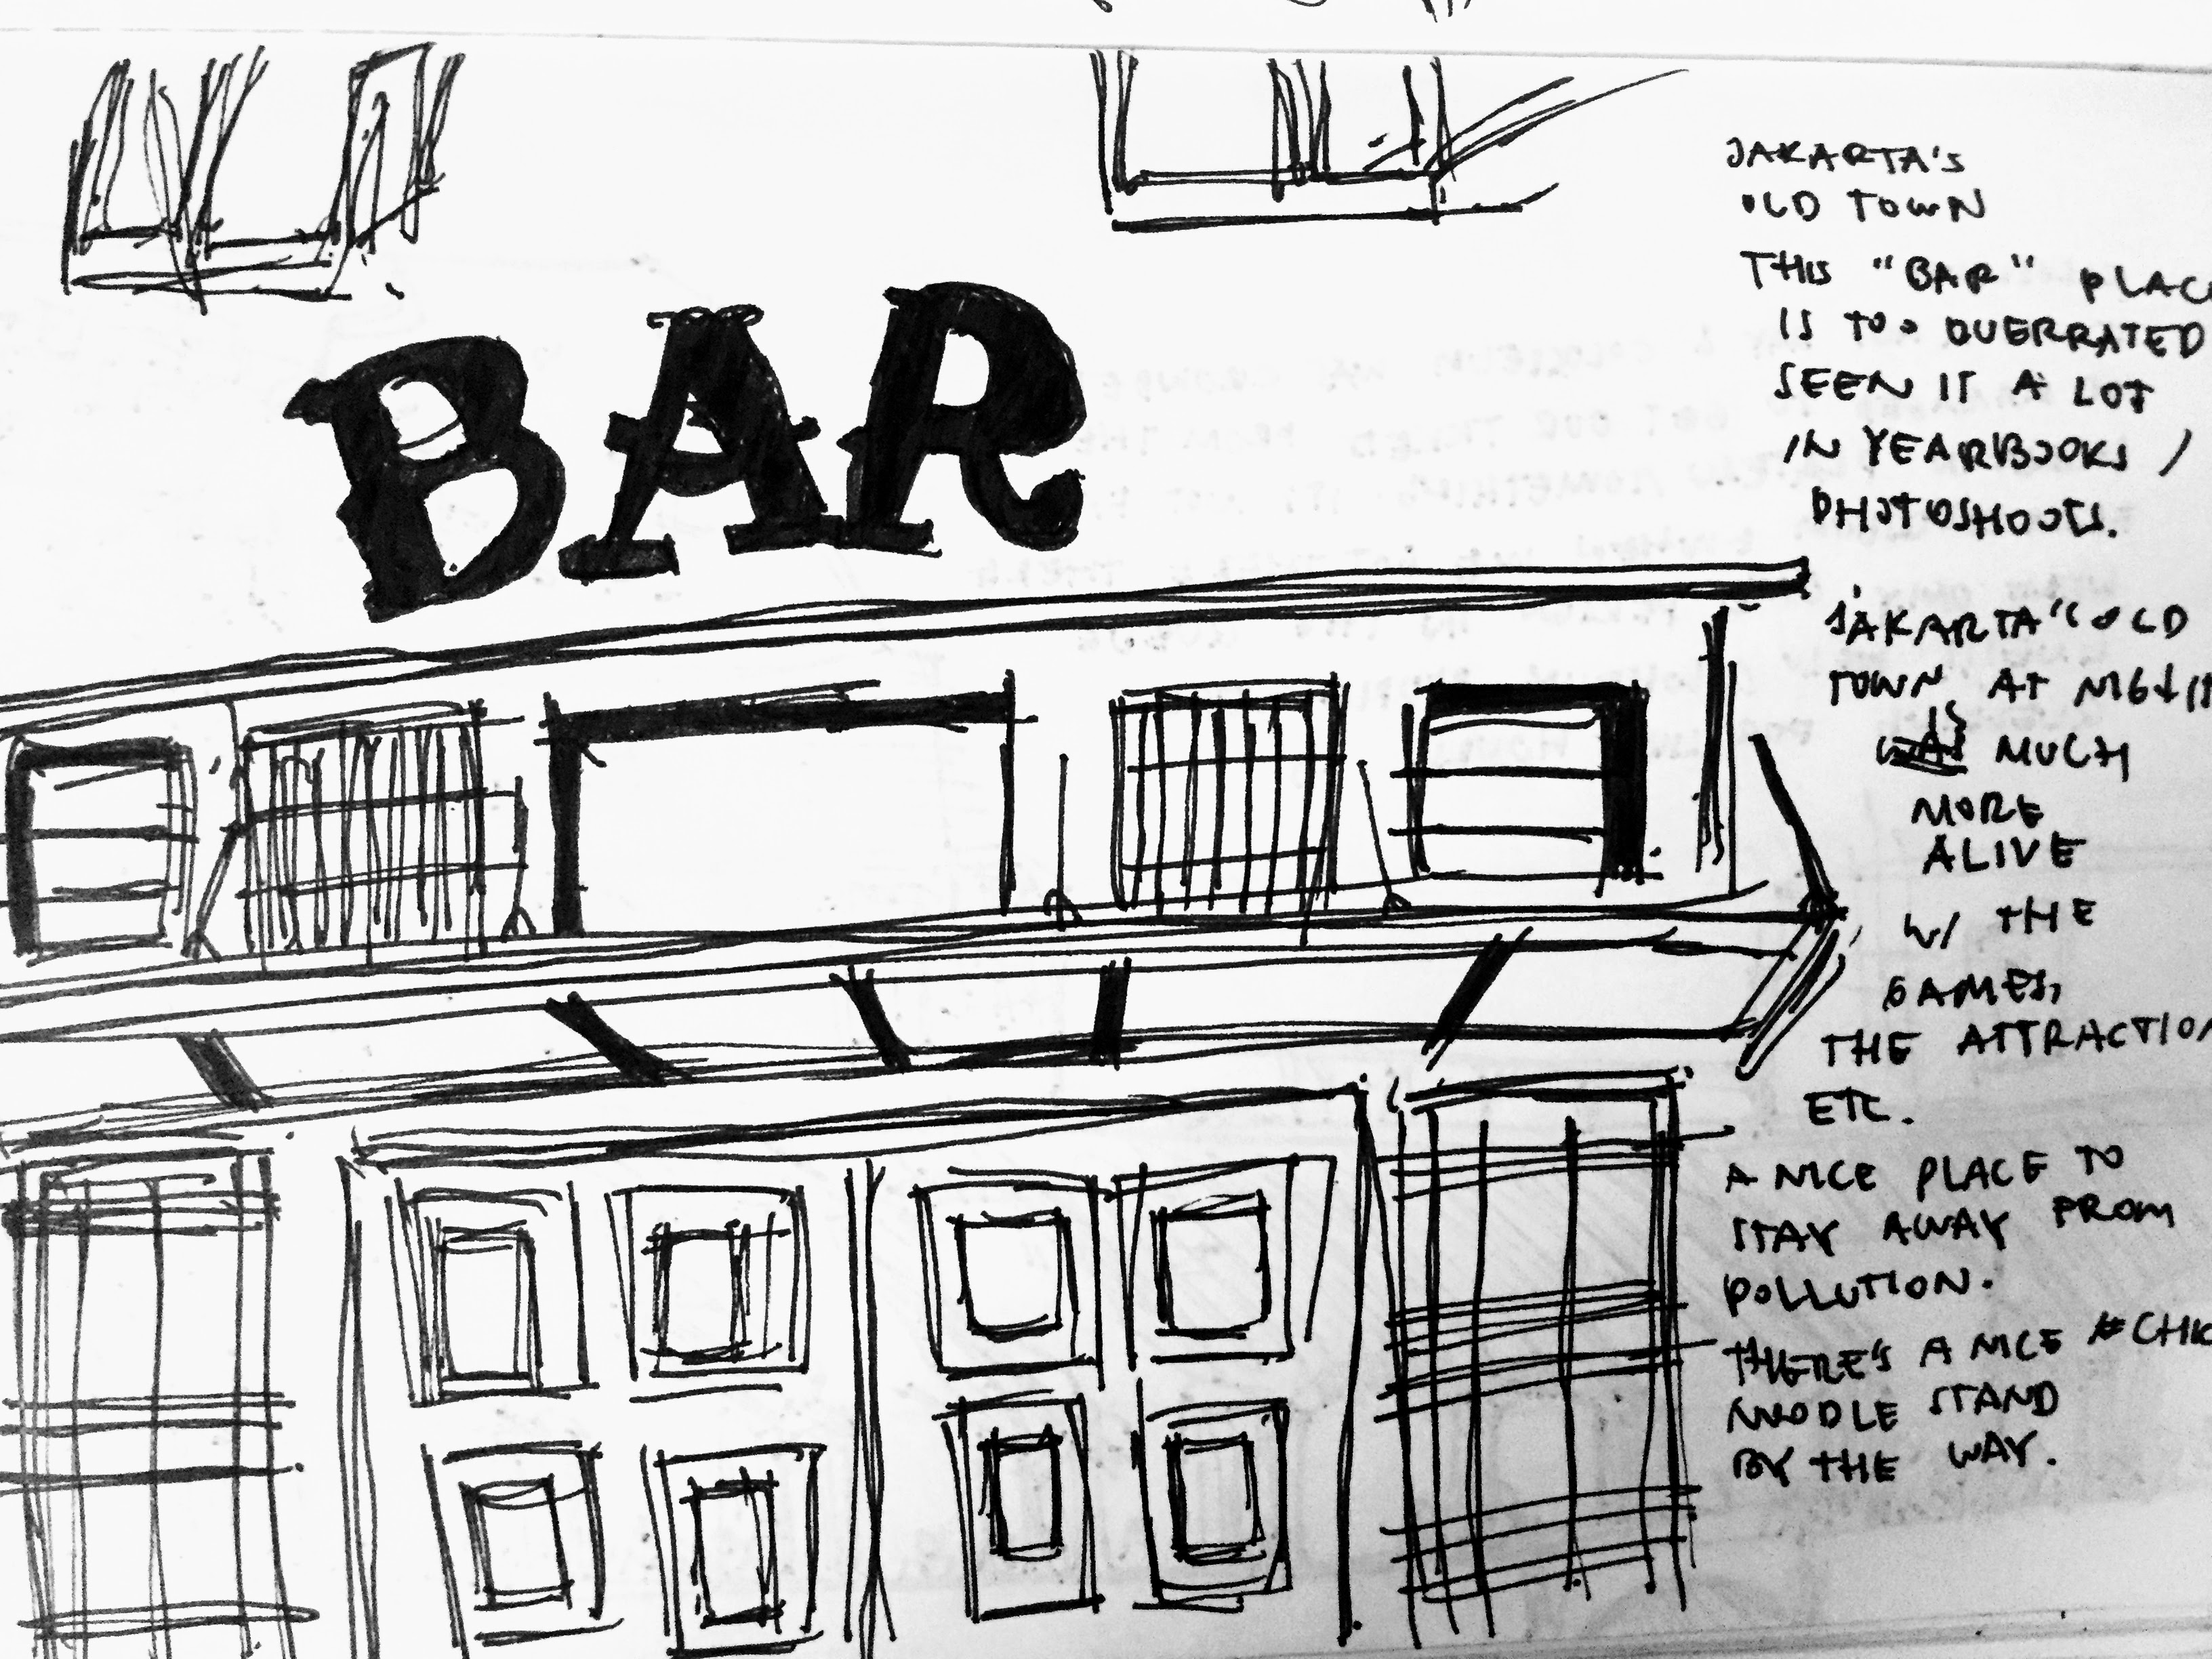 BAR
JAKARTA'S
OLD TOWN
THIS "BAR" PLAC
IS TOO OVERRATED
SEEN IT A LOT
IN YEARBOOKS /
PHOTOSHOOTS.
JAKARTA'S OLD
TOWN AT NIGHT
IS MUCH
MORE
ALIVE
W/ THE
GAMES,
THE ATTRACTION
ETC.
A NICE PLACE TO
STAY AWAY FROM
POLLUTION.
THERE'S A NICE
NOODLE STAND
BY THE WAY.